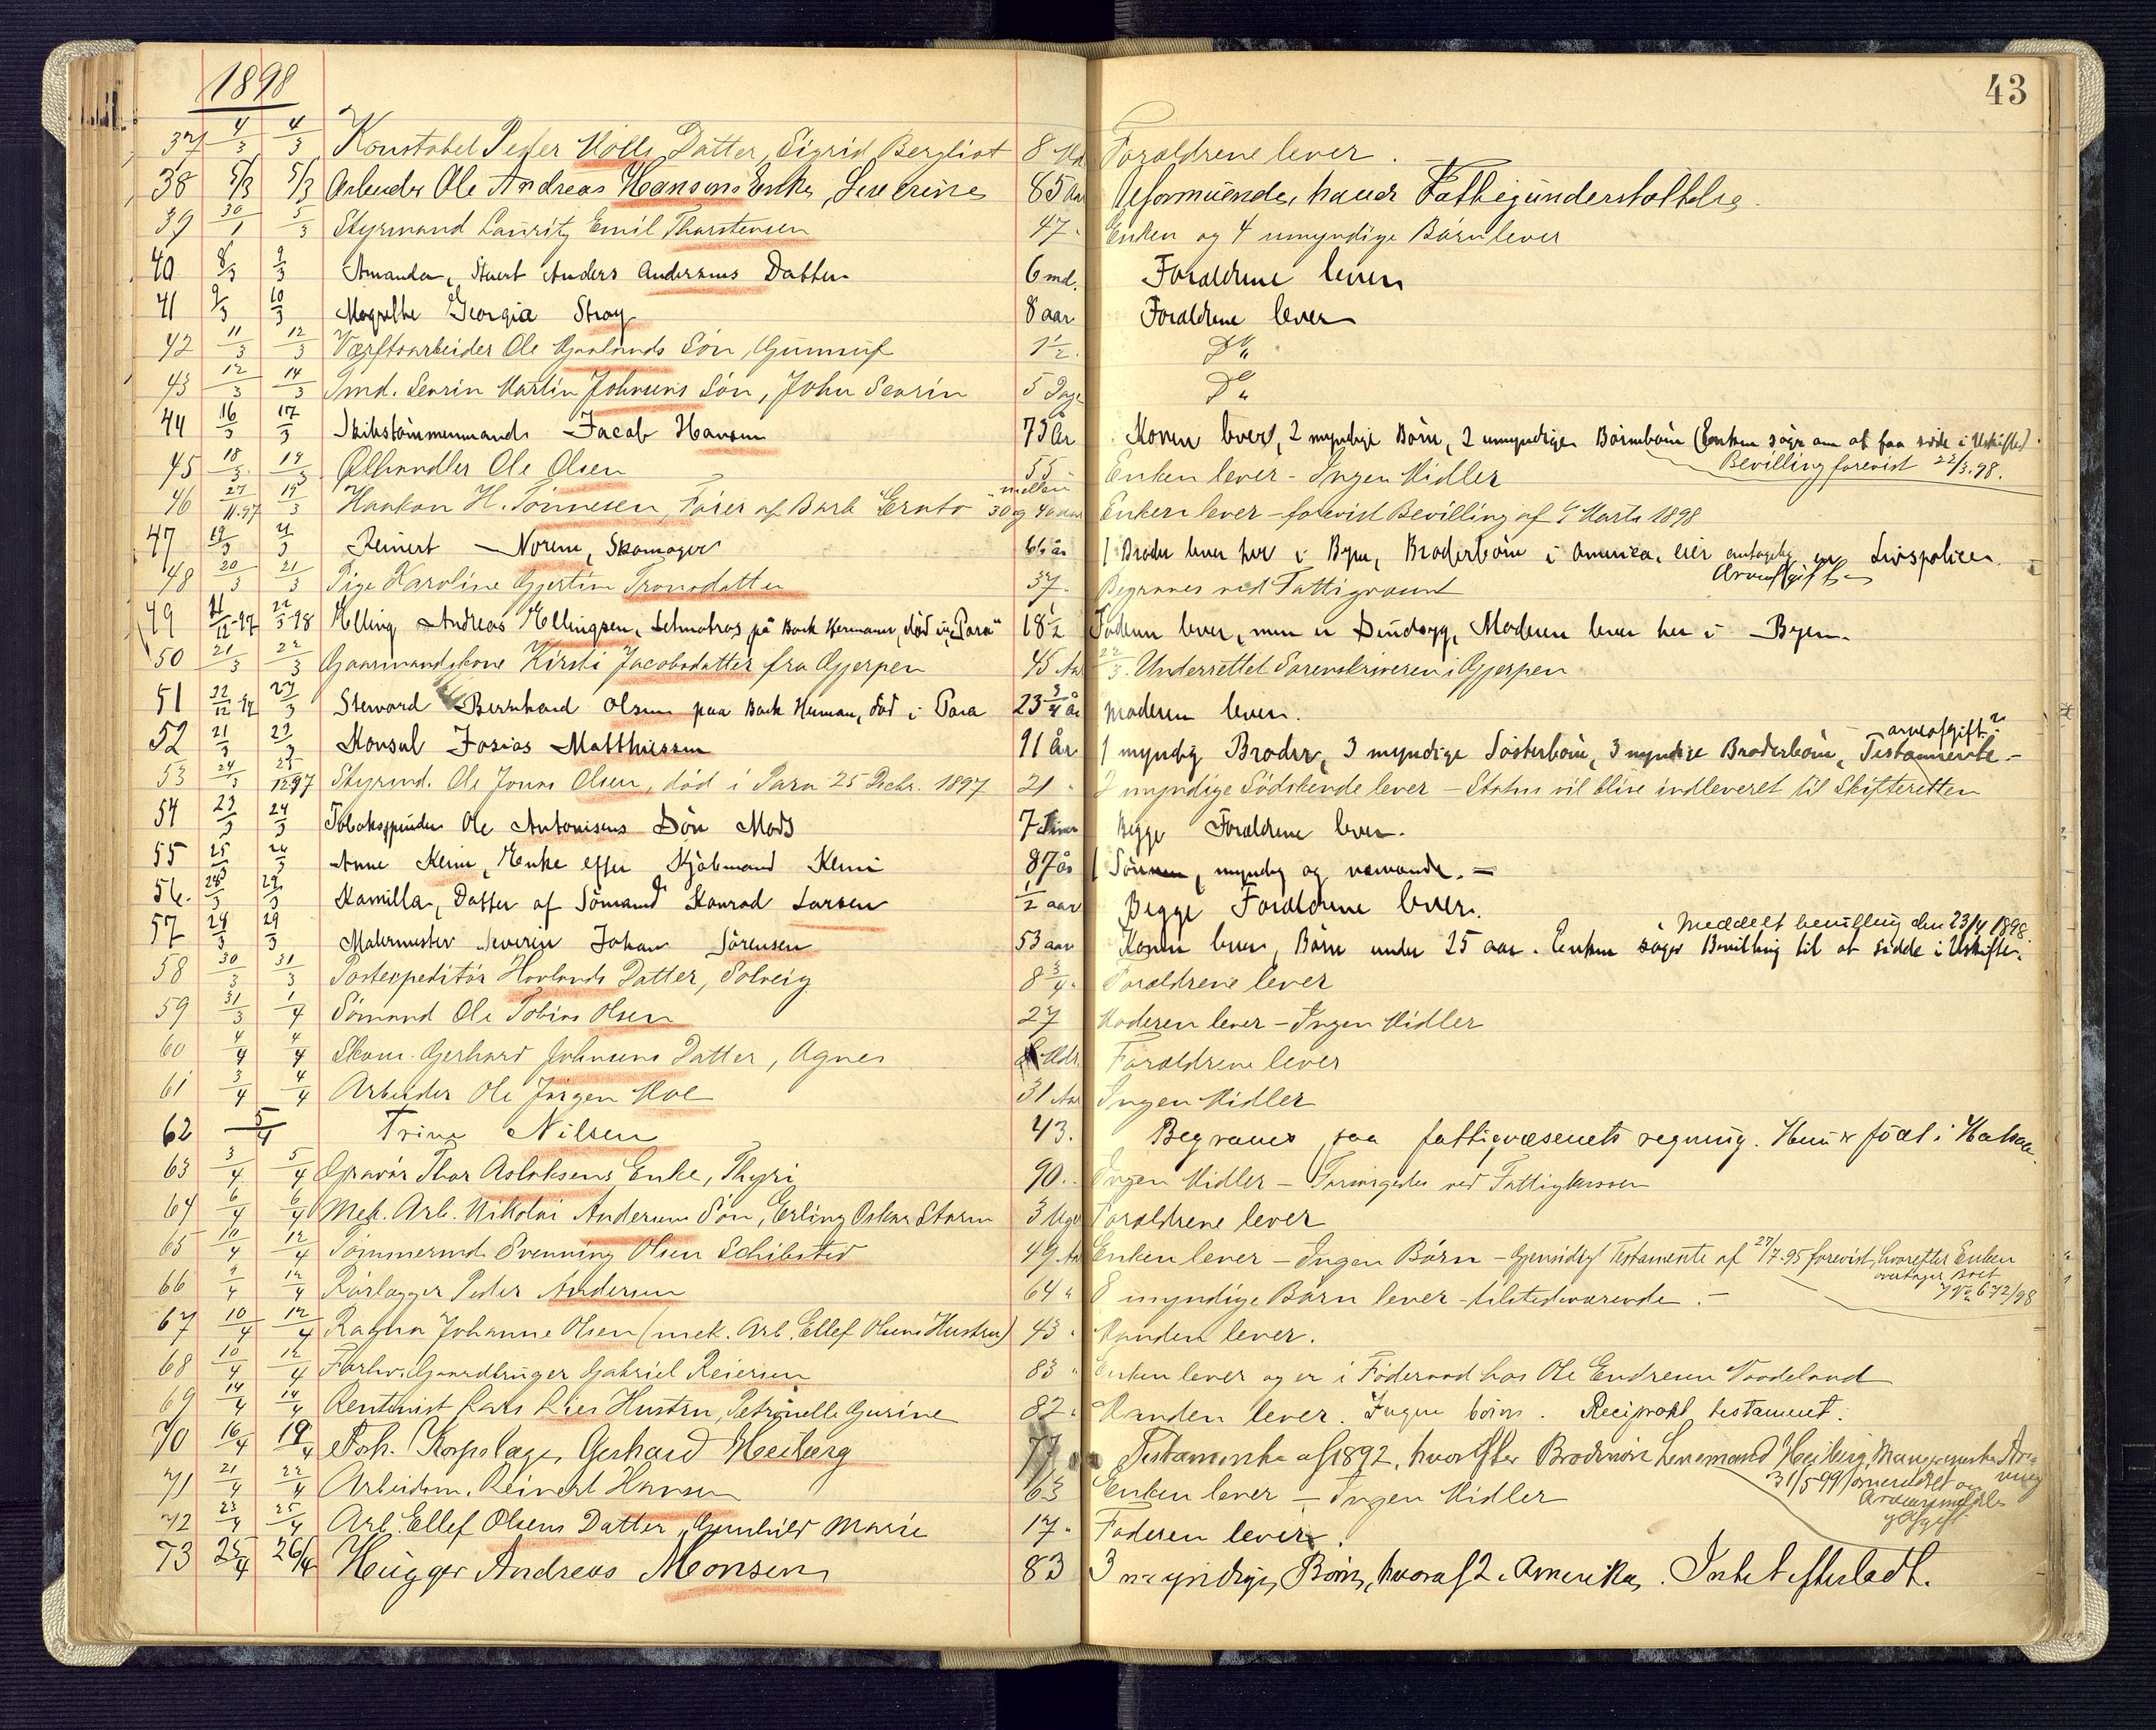 43
1898
37 4/3 4/3 Konstabel Peder Holls Datter, Sigrid Bergliot 8 Md Forældrene lever.
38 5/3 5/3 Arbeider Ole Andreas Hansens Enke, Severine 85 Aar Uformuende, haver Fattigunderstøttelse.
39 30/1 5/3 Styrmand Lauritz Emil Thorstensen 47 " Enken og 4 umyndige Børn lever
40 8/3 9/3 Amanda, Stuert Anders Andersens Datter 6 md. Forældrene lever
41 9/3 10/3 Magrethe Georgia Stray 8 aar Forældrene lever
42 11/3 12/3 Værftsarbeider Ole Søn, Gunnuf 1 1/2 Do "
43 12/3 14/3 Smd. Severin Martin Johnsens Søn, John Severin 5 Dage Do "
44 16/3 17/3 Skibstømmermand Jacob Hansen 73 År Konen lever, 2 myndige Børn, 2 umyndige Børnebørn (Enken søger om at faa sidde i Uskiftet)
Bevilling forevist 22/3.98.
45 18/3 19/3 Ølhandler Ole Olsen 55 " Enken lever - Ingen Midler
46 27/11.97 19/3 Haakon H. Tønnesen, Fører af Bark Ernto mellem 30 og 40 aar Enken lever - forevist Bevilling af 9 Marts 1898
47 19/3 21/3 Reinert Norem, Skomager 66 år 1 Broder lever her i Byen, Broderbørn i America, eier antagelig en Livspolice.
Arveafgift
48 20/3 21/3 Pige Karoline Gjertine Tronsdatter 37 " Begraves ved Fattigvæsnet
49 21/12-97 22/3-98 Elling Andreas Ellingsen, Letmatros på Bark Hermann, død i "Para" 18 1/2 Faderen lever, men er Sindssyg, Moderen lever her i Byen.
50 21/3 22/3 Gaarmandskone Kirsti Jacobsdatter fra Gjerpen 45 Aar 22/3. Underrettet Sorenskriveren i Gjerpen
51 22/12-97 23/3 Steward Bernhard Olsen paa Bark Herman, død i Para 23 3/4 år Moderen lever.
52 21/3 23/3 Konsul Josias Matthiessen 91 År 1 myndig Broder, 3 myndige Søsterbørn, 3 myndige Broderbørn, Testamente. -
arveafgift
53 24/3 25/12 97 Styrmd. Ole Jonas Olsen, død i Para 25 Decbr. 1897 21 " 2 myndige Sødskende lever - Status vil blive indleveret til Skifteretten
54 23/3 24/3 Tobakspinder Ole Antonisens Søn Mads 7 Timer Begge Forældrene lever.
55 25/3 26/3 Anne Klem, Enke efter Kjøbmand Klem 87 år 1 Søn, myndig og nærværende. -
56. 28/3 29/3 Kamilla, Datter af Sømand Konrad Larsen 1/2 aar Begge Forældrene lever.
57 28/3 29/3 Malermester Severin Johan Sørensen 53 aar Konen lever, Børn under 25 aar. Enken søger Bevilling til at sidde i Uskifte.
Meddelt bevilling den 23/4 1898.
58 30/3 31/3 Postexpeditør Hovlands Datter, Solveig 8 3/4 " Forældrene lever
59 31/3 1/4 Sømand Ole Tobias Olsen 27 Moderen lever - Ingen Midler
60 4/4 4/4 Skom. Gerhard Johnsens Datter, Agnes Mdr. Forældrene lever
61 3/4 4/4 Arbeider Ole Jørgen Moe 31 Aar Ingen Midler
62 5/4 Trine Nilsen 43. Begraves paa fattigvæsenets regning. Hun er født i
63 3/4 5/4 Gravør Thor Aslaksens Enke, Thyri 90 " Ingen Midler - Forsørgedes ved Fattigkassen
64 6/4 6/4 Mek. Arb. Nikolai Andersens Søn, Erling Oskar Storm 3 Uger Forældrene lever
65 10/4 12/4 Tømmermd. Svenning Olsen Schibsted 49 Aar Enken lever - Ingen Børn - Gjensidigt Testamente af 27/7.95 forevist, hvorefter Enken
overtager Boet
66 9/4 12/4 Rørlægger Peder Andersen 64 " 8 myndige Børn lever - tilstedeværende. -
67 10/4 12/4 Ragna Johanne Olsen (mek. Arb. Ellef Olsens Hustru) 43 " Manden lever.
68 10/4 12/4 Forhv. Gaardbruger Gabriel Reiersen 83 " Enken lever og er i Føderaad hos Ole Endresen Vaadeland
69 14/4 14/4 Rentenist Lars Lies Hustru, Petronelle Gurine 82 " Manden lever. Ingen børn. Reciprokt testament.
70 16/4 19/4 Forh. Korpslæge, Gerhard Heiberg 77 Testamente af 1892, hvorefter Brodersøn Lensmand Heiberg,
31/5 99
71 21/4 22/4 Arbeidsm. Reinert Hansen 63 Enken lever - Ingen Midler
72 23/4 25/4 Arb. Ellef Olsens Datter, Gunhild Marie 17 " Faderen lever.
73 25/4 26/4 Hugger Andreas Monsen 83 3 myndige Børn, hvoraf 2 i Amerika. Intet efterladt.